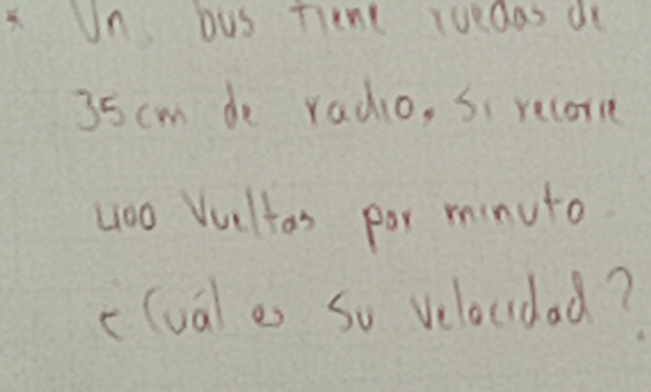 * Un bus tiene ruedas de
35cm de radio. Si recorre
400 Vueltas por minuto
¿Cuál es su velocidad?